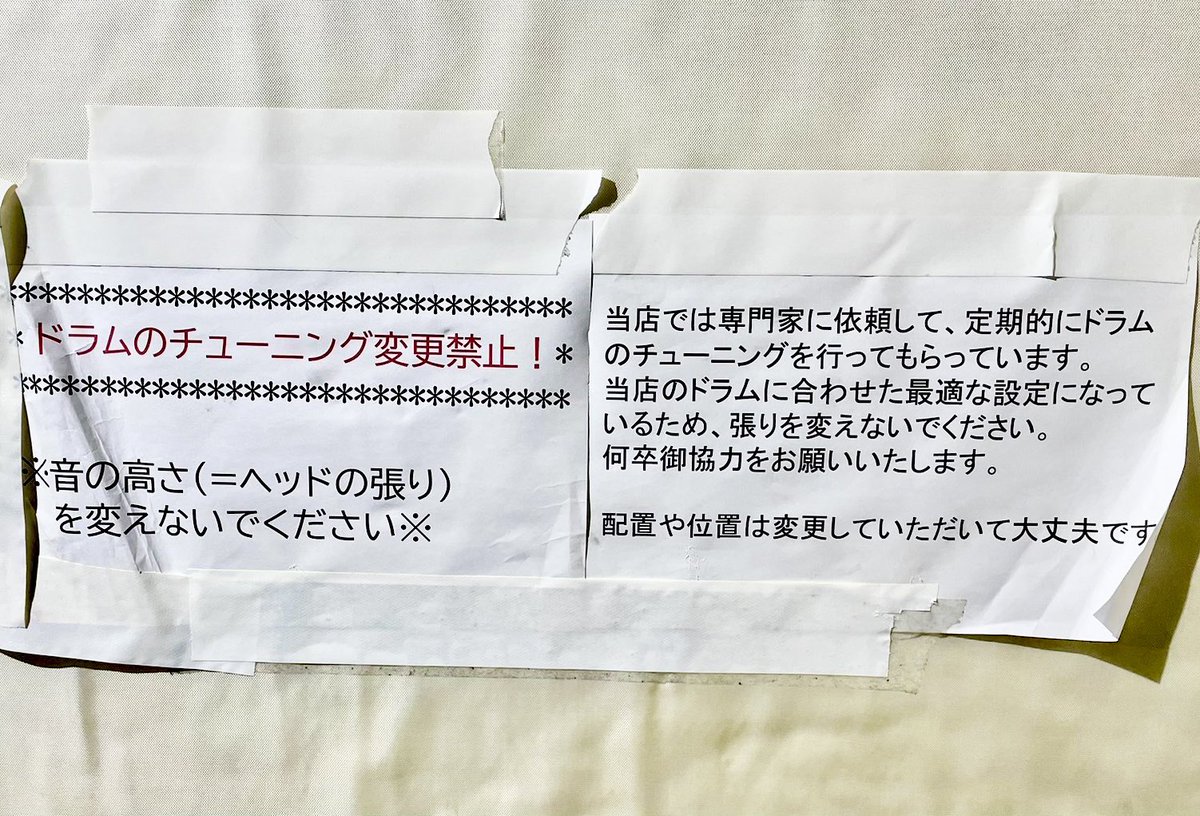 *******************************
*ドラムのチューニング変更禁止！*
*******************************
※音の高さ(=ヘッドの張り)
を変えないでください※
当店では専門家に依頼して、定期的にドラム
のチューニングを行ってもらっています。
当店のドラムに合わせた最適な設定になって
いるため、張りを変えないでください。
何卒御協力をお願いいたします。
配置や位置は変更していただいて大丈夫です